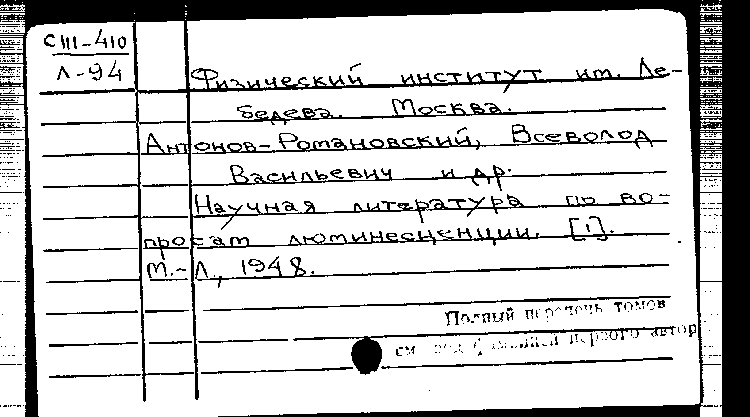 СIII-410
Л-94
Физический институт им. Ле-
бедева. Москва.
Антонов-Романовский, Всеволод
Васильевич и др.
Научная литература по во-
просам люминесценции. [1].
М.-Л., 1948.
Полный перечень томов
см. под фамилией первого автор